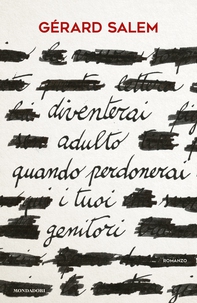 GÉRARD SALEM
diventerai
adulto
quando perdonerai
i tuoi
genitori
ROMANZO
MONDADORI